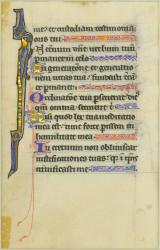 me: et custodiam testimoni
oris tui
In eternum dñe verbum tuū
permanet in celo
In generatione et generatio
nem veritas tua: fundasti terrā
et permanet
Ordinatione tua perseverat dies
qm̄ omnia serviunt
Nisi quod lex tua meditatio
mea est: tunc forte perissem in
humilitate mea
In eternum non obliviscar
iustificationes tuas: ipīs
vivificasti me